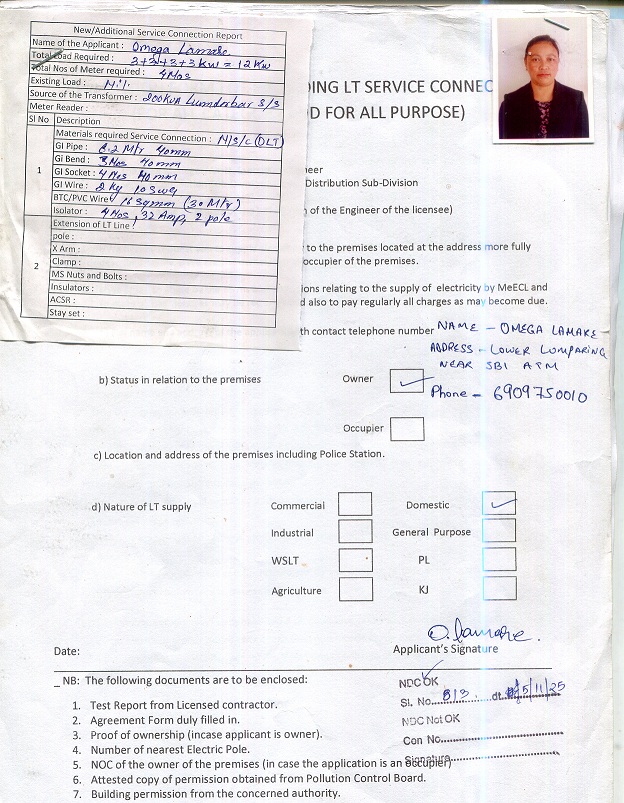 New/Additional Service Connection Report
Name of the Applicant : Omega Lamare
Total Load Required : 3+3+3+3 KW = 12 KW
Total Nos of Meter required : 4 Nos
Existing Load : Nil
Source of the Transformer : 200KVA Lumdorbar S/S
Meter Reader :
Sl No Description
Materials required Service Connection : N/S/C (OLT)
1
GI Pipe : 8.2 Mtr 40mm
GI Bend : 3 Nos 40mm
GI Socket : 4 Nos 40mm
GI Wire : 2 Kg 10 swg
BTC/PVC Wire : 16 Sqmm (30 Mtr)
Isolator : 4 Nos, 32 Amp, 2 pole
2
Extension of LT Line
pole :
X Arm :
Clamp :
MS Nuts and Bolts :
Insulators :
ACSR :
Stay set :
ING LT SERVICE CONNEC
D FOR ALL PURPOSE)
eer
Distribution Sub-Division
of the Engineer of the licensee)
to the premises located at the address more fully
occupier of the premises.
ions relating to the supply of electricity by MeECL and
d also to pay regularly all charges as may become due.
th contact telephone number NAME - OMEGA LAMARE
ADDRESS - LOWER LUMPARING
NEAR SBI ATM
Phone - 6909750010
b) Status in relation to the premises Owner ✓
Occupier
c) Location and address of the premises including Police Station.
d) Nature of LT supply Commercial Domestic ✓
Industrial General Purpose
WSLT PL
Agriculture KJ
O. Lamare.
Date: Applicant's Signature
_ NB: The following documents are to be enclosed:
1. Test Report from Licensed contractor.
2. Agreement Form duly filled in.
3. Proof of ownership (incase applicant is owner).
4. Number of nearest Electric Pole.
5. NOC of the owner of the premises (in case the application is an occupier)
6. Attested copy of permission obtained from Pollution Control Board.
7. Building permission from the concerned authority.
NDC OK ✓
Sl. No. 813 dt. 5/11/25
NDC Not OK
Con No.
Signature